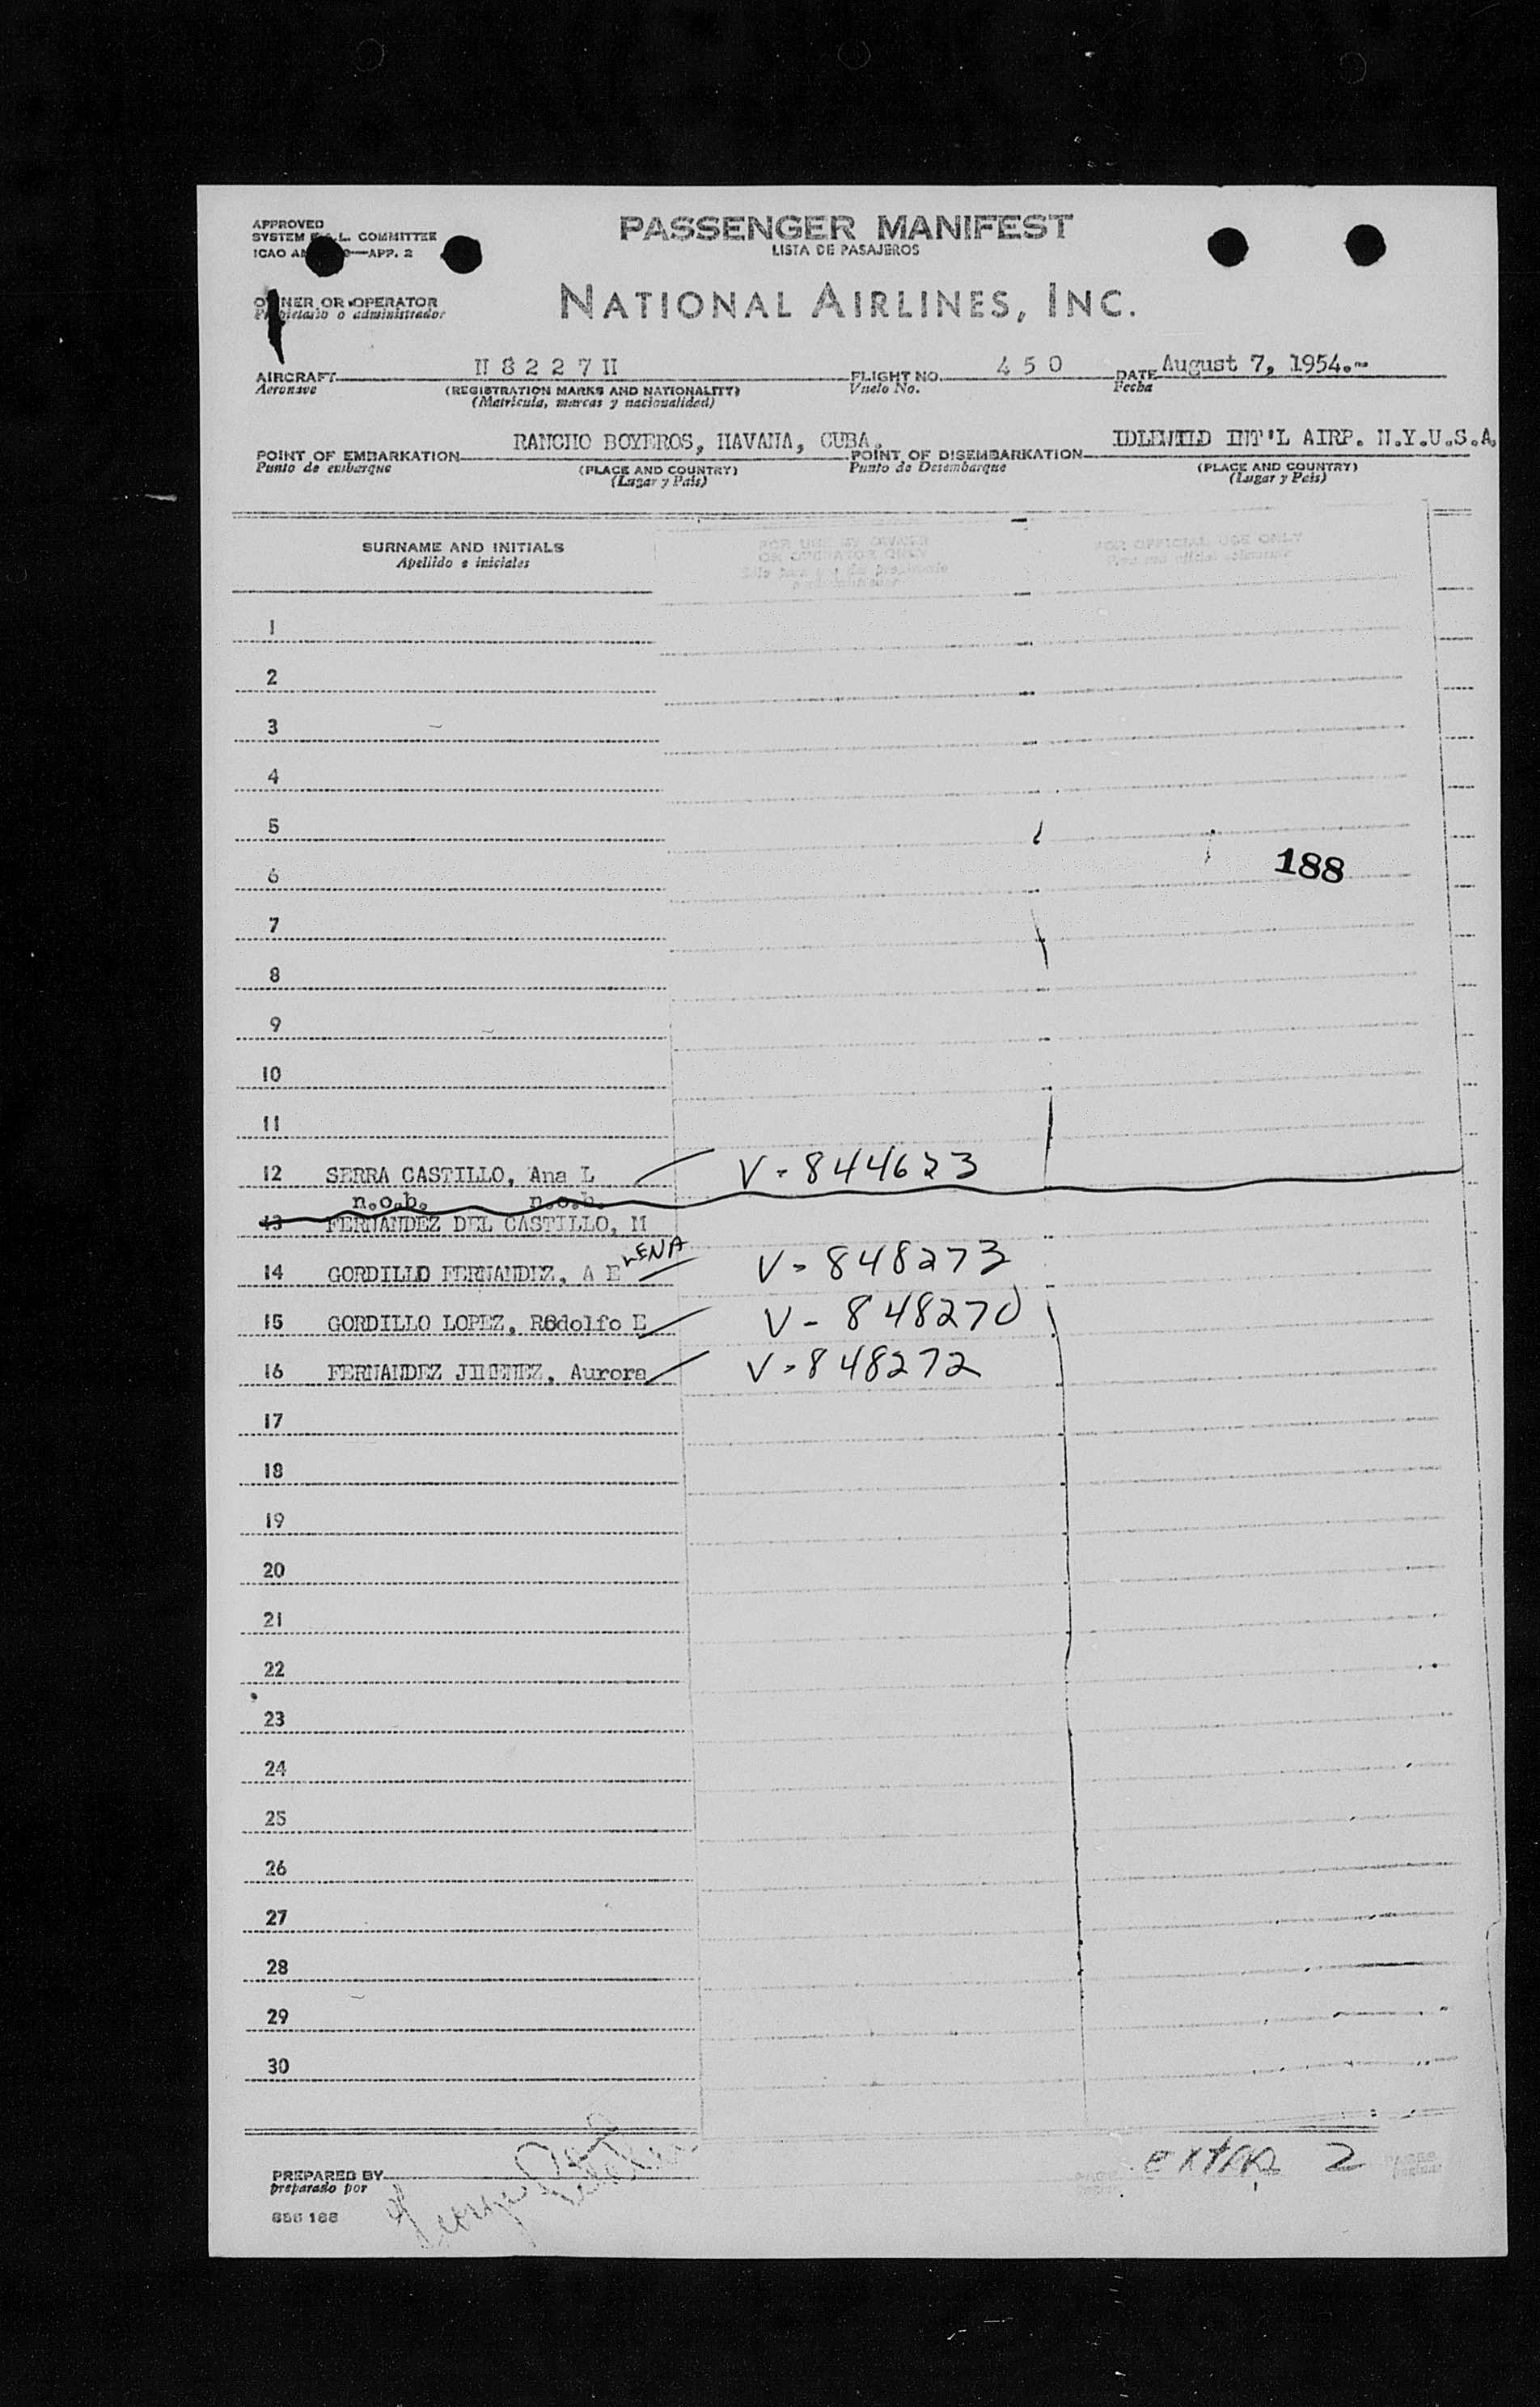 APPROVED
SYSTEM F.A.L. COMMITTEE
ICAO AN —APP. 2
PASSENGER MANIFEST
LISTA DE PASAJEROS
OWNER OR OPERATOR
Propietario o administrador
NATIONAL AIRLINES, INC.
AIRCRAFT N 8 2 2 7 H FLIGHT NO. 4 5 0 DATE August 7, 1954.--
Aeronave (REGISTRATION MARKS AND NATIONALITY) Vuelo No. Fecha
(Matricula, marcas y nacionalidad)
POINT OF EMBARKATION RANCHO BOYEROS, HAVANA, CUBA. POINT OF DISEMBARKATION IDLEWILD INT'L AIRP. N.Y.U.S.A.
Punto de embarque (PLACE AND COUNTRY) Punto de Desembarque (PLACE AND COUNTRY)
(Lugar y Pais) (Lugar y Pais)
SURNAME AND INITIALS FOR USE BY OWNER FOR OFFICIAL USE ONLY
Apellido e iniciales OR OPERATOR ONLY
1
2
3
4
5
6 188
7
8
9
10
11
12 SERRA CASTILLO, Ana L V-844623
n.o.b. n.o.b.
13 FERNANDEZ DEL CASTILLO, M
LENA
14 GORDILLO FERNANDEZ, A E V-848273
15 GORDILLO LOPEZ, Rodolfo E V-848270
16 FERNANDEZ JIMENEZ, Aurora V-848272
17
18
19
20
21
22
23
24
25
26
27
28
29
30
PREPARED BY George EXTAR 2
preparado por